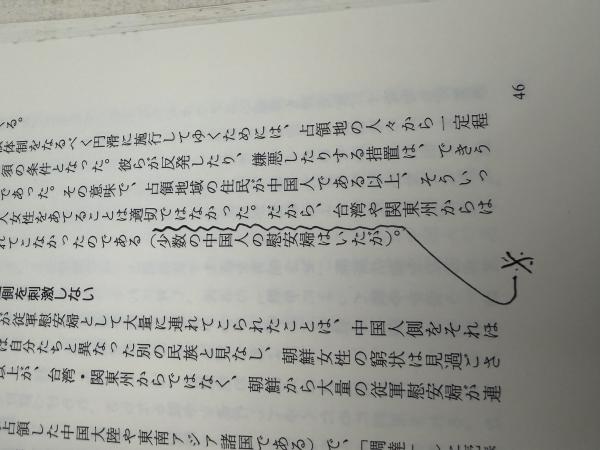 46
くる。
体制をなるべく円滑に施行してゆくためには、占領地の人々から一定程
須の条件となった。彼らが反発したり、嫌悪したりする措置は、できう
であった。その意味で、占領地域の住民が中国人である以上、そういっ
人女性をあてることは適切ではなかった。だから、台湾や関東州からは
れてこなかったのである（少数の中国人の慰安婦はいたが）。
側を刺激しない
が従軍慰安婦として大量に連れてこられたことは、中国人側をそれほ
は自分たちと異なった別の民族と見なし、朝鮮女性の窮状は見過ごさ
以上が、台湾・関東州からではなく、朝鮮から大量の従軍慰安婦が連
占領した中国大陸や東南アジア諸国である）で、「調達